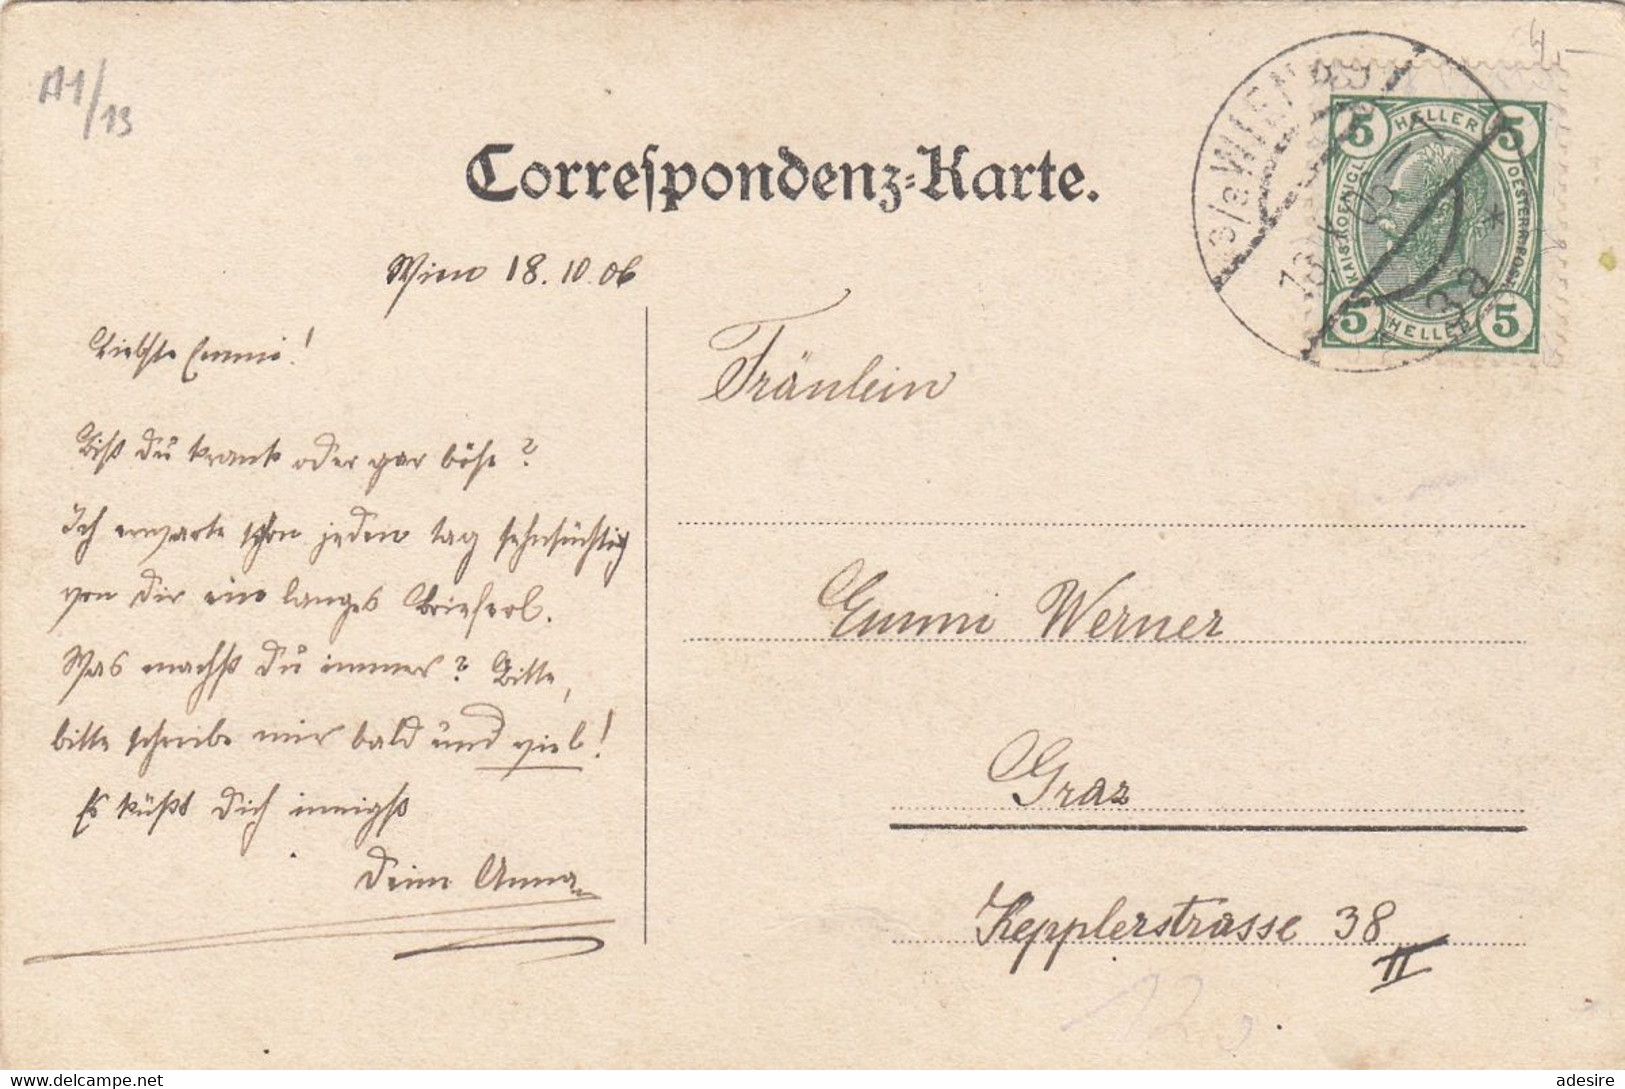 A1/13
Correspondenz-Karte.
Wien 18.10.06
Liebste Emmi!
Bist Du krank oder gar böse?
Ich erwarte schon jeden Tag sehnsüchtig
von Dir ein langes Brieferl.
Was machst Du immer? Bitte,
bitte schreibe mir bald und viel!
Es küßt Dich innigst
Deine Anna
5 HELLER 5
KAIS. KOENIGL. OESTERR. POST
5 HELLER 5
WIEN
Fräulein
Emmi Werner
Graz
Kepplerstrasse 38
II
adesire